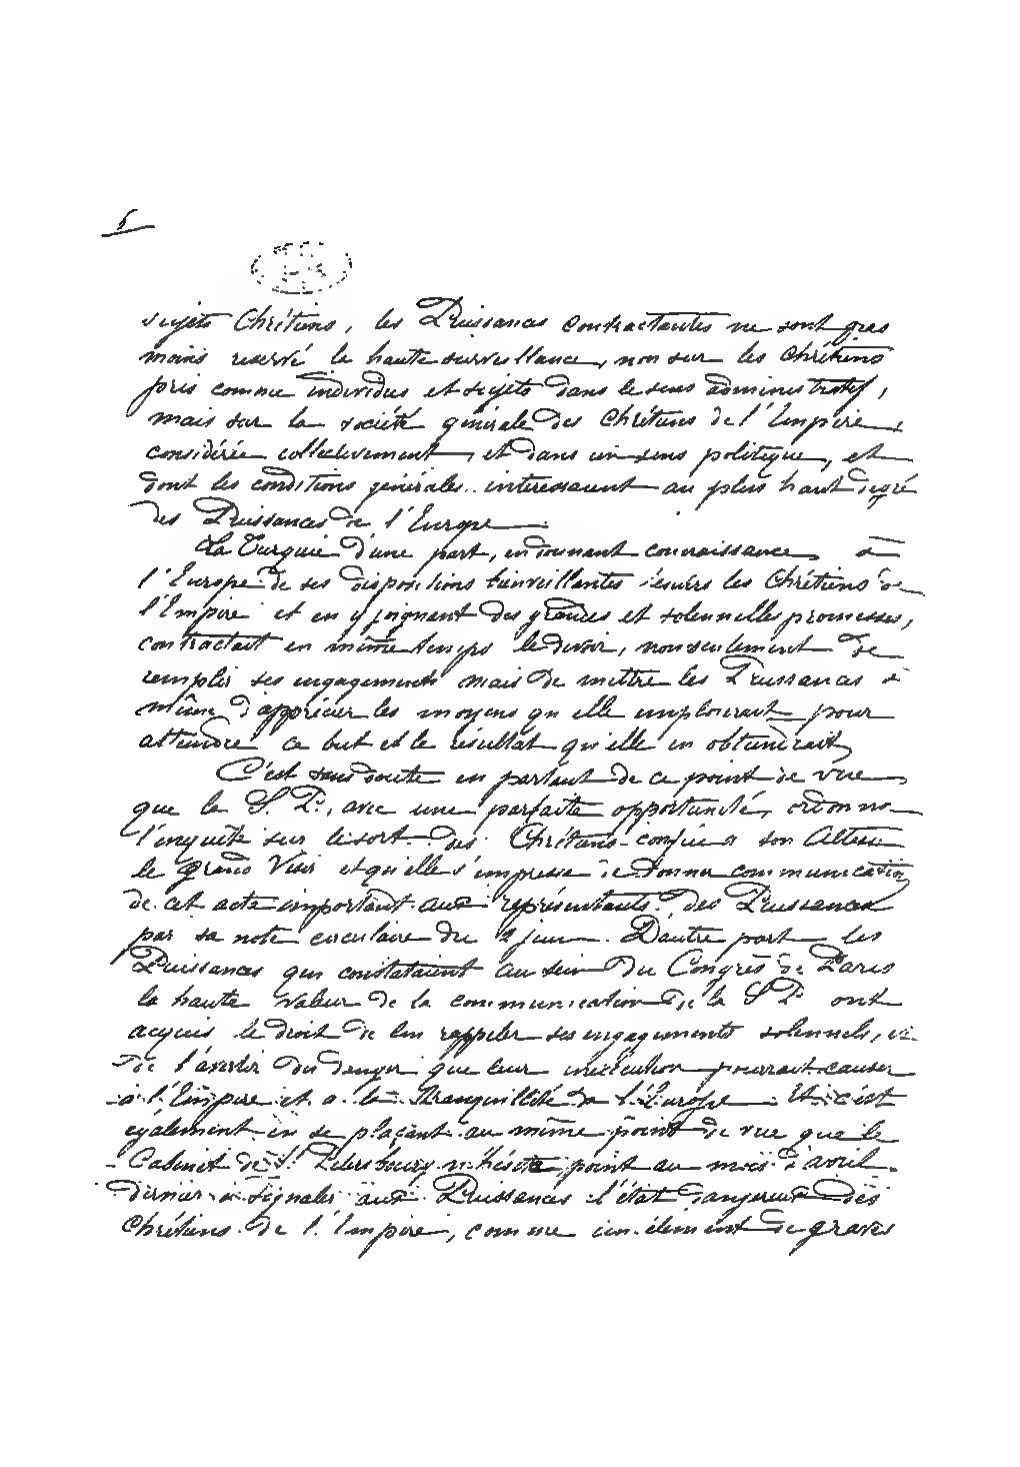 6
sujets Chrétiens, les Puissances contractantes ne sont pas
moins reservé la haute surveillance, non sur les chrétiens
pris comme individus et sujets dans le sens administratif,
mais sur la société générale des Chrétiens de l'Empire,
considérée collectivement, et dans un sens politique, et
dont les conditions générales interessaient au plus haut degré
des Puissances de l'Europe.
La Turquie d'une part, en donnant connaissance à
l'Europe de ses dispositions bienveillantes envers les Chrétiens de
l'Empire et en y joignant des grandes et solennelles promesses,
contractait en même temps le devoir, non seulement de
remplir ses engagements mais de mettre les Puissances à
même d'apprécier les moyens qu'elle emploierait pour
atteindre ce but et le résultat qu'elle en obtiendrait,
C'est sans doute en partant de ce point de vue,
que la S. P., avec une parfaite opportunité, ordonna
l'enquête sur le sort des Chrétiens confiée à son Altesse
le Grand Visir et qu'elle s'empressa de donner communication
de cet acte important aux représentants des Puissances
par sa note circulaire du 2 juin. D'autre part les
Puissances qui constataient au sein du Congrès de Paris
la haute valeur de la communication de la S P. ont
acquis le droit de leur rappeler ses engagements solennels,
de l'avertir du danger que leur inexécution pourrait causer
à l'Empire et à la tranquillité de l'Europe. Et c'est
également en se plaçant au même point de vue que le
Cabinet de St. Petersbourg n'hésita point au mois d'avril
dernier à signaler aux Puissances l'état dangereux des
chrétiens de l'Empire, comme un élément de graves